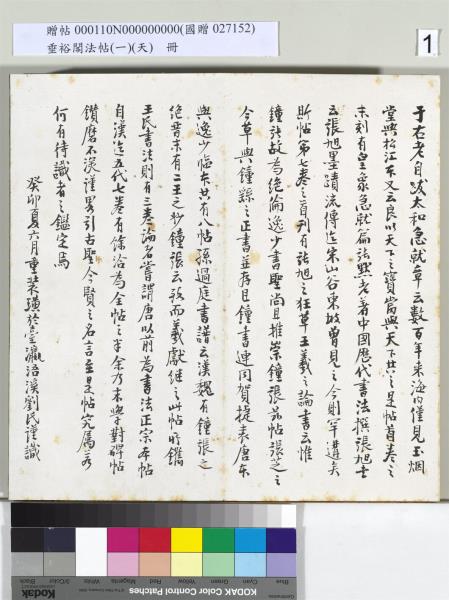 贈帖 000110N000000000(國贈 027152)
垂裕閣法帖(一)(天) 冊
1
于右老自跋太和急就章云數百年來海內僅見玉烟
堂與松江本又云良以天下之寶當與天下共之是帖首卷之
末刻有皇象急就篇法
老著中國歷代書法撰張旭章
云張旭墨蹟流傳迄宋山谷東坡曾見之今則罕遘矣
斯帖第七卷之首列有張旭之狂草王羲之論書云惟
鐘張故為絕倫逸少書聖尚且推崇鐘張茲帖張芝之
今草與鐘繇之正書並存且鐘書連同賀捷表唐本
與逸少臨本共有八帖孫過庭書譜云漢魏有鐘張之
絕晉末有二王之妙鐘張云沒而羲獻繼之此帖所鐫
王氏書法則有三卷論者嘗謂唐以前為書法正宗本帖
自漢迄五代七卷有餘洽為全帖之半余乃本學對碑帖
鑽磨不深謹畧引古聖今賢之名言至是帖究屬若
何有待識者之鑑定焉
癸卯夏六月重裝
於臺瀛
溪劉民謹識
Kodak
KODAK Color Control Patches
Blue
Cyan
Green
Yellow
Red
Magenta
White
Black